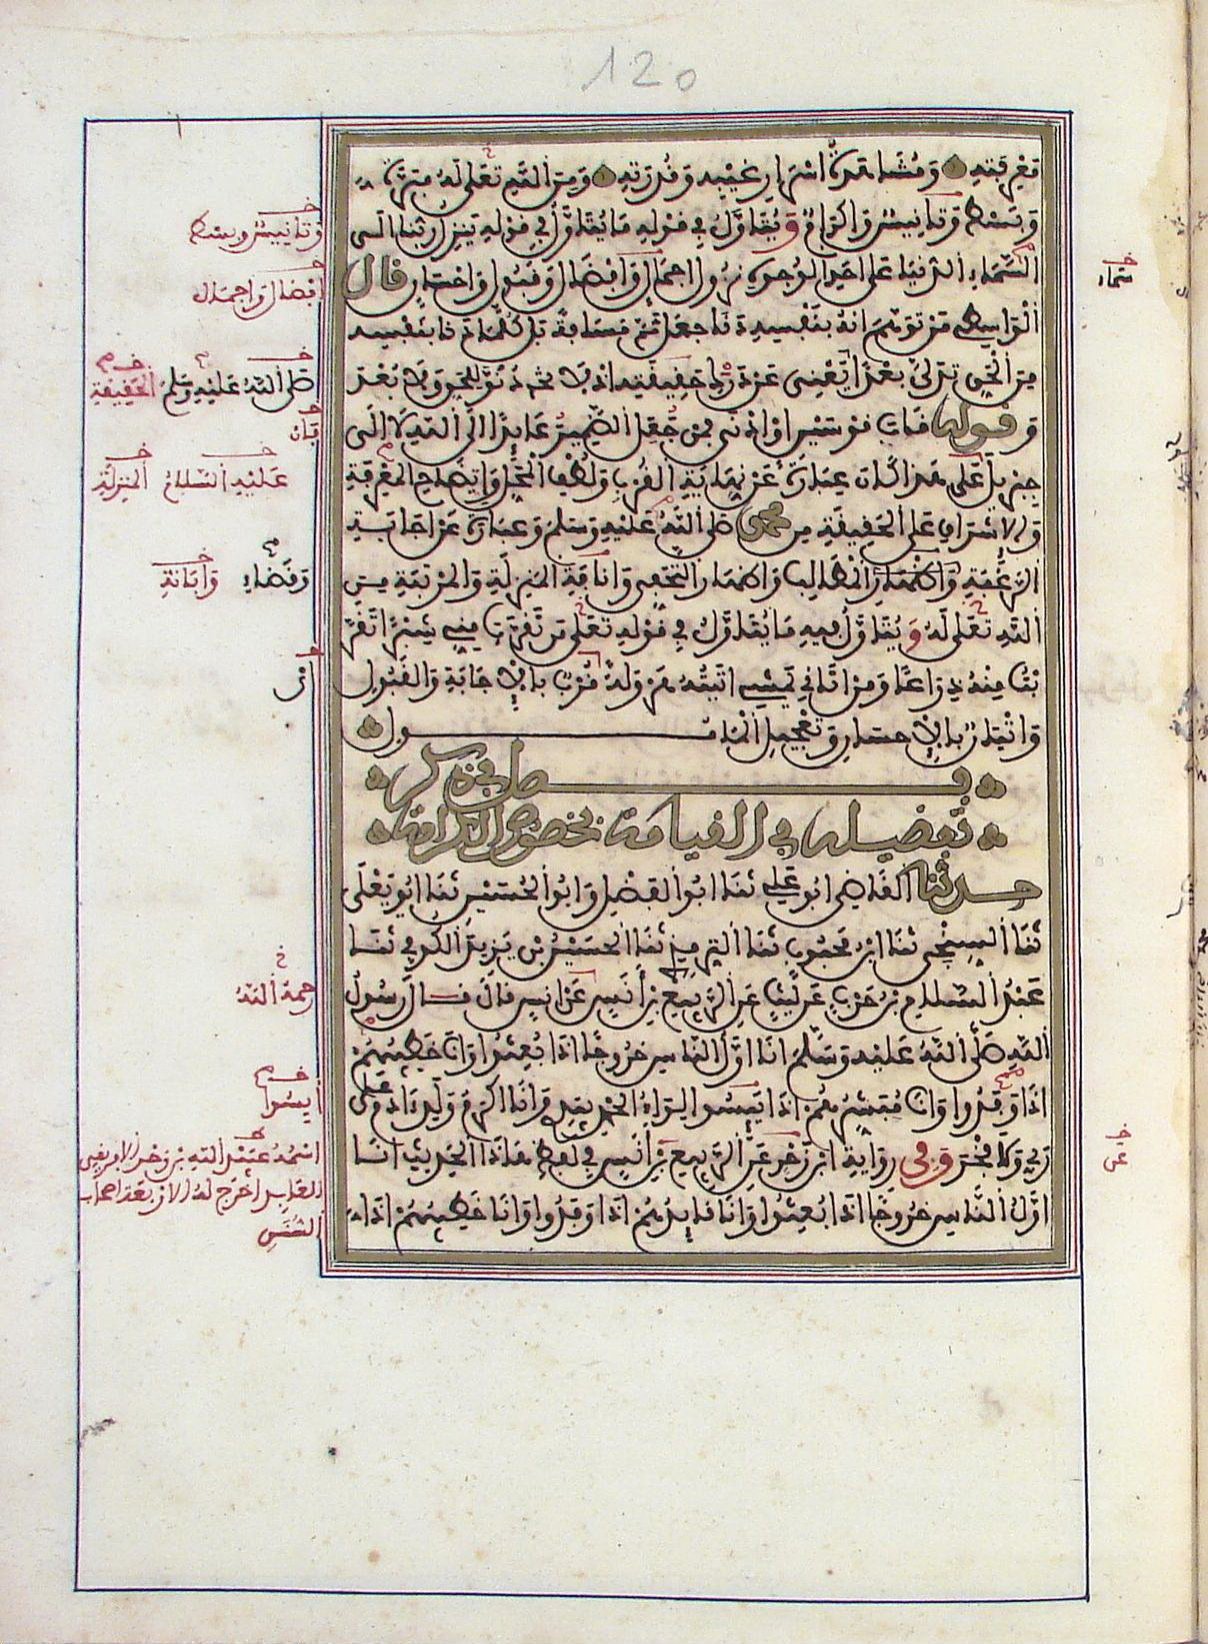 120
مَعْرِفَتِهِ وَمُشَاهَدَةُ اسْرَارِ غَيْبِهِ وَقُدْرَتِهِ وَمِنَ اللَّهِ تَعَلَى لَهُ مَبَرَّةٌ
وَبَسْطٌ وَتَانِيسٌ وَاكْرَامٌ وَيُتَاوَّلُ فِي قَوْلِهِ مَا يُتَاوَّلُ فِي قَوْلِهِ يَنْزِلُ رَبُّنَا الَى
السَّمَاءِ الدُّنْيَا عَلَى احَدِ الْوُجُوهِ نُزُولُ اجْمَالٍ وَافْضَالٍ وَقَبُولٍ وَاحْسَانٍ قال
الْوَاسِطِي مَنْ تَوَهَّمَ انَّهُ بِنَفْسِهِ دَنَا جَعَلَ ثَمَّ مَسَافَةً بَلْ كُلَّمَا دَنَا بِنَفْسِهِ
مِنَ الْحَقِّ تَدَلَّى بُعْدًا يَعْنِى عَنْ دَرْكِ حَقِيقَتِهِ اذْ لَا دُنُوَّ لِلْحَقِّ وَلَا بُعْدَ
وَقوله قَابَ قَوْسَيْنِ اوْ ادْنَى فَمَنْ جَعَلَ الضَّمِيرَ عَايِدًا الَى اللَّهِ لَا الَى
جِبْرِيلَ عَلَى هَذَا كَانَ عِبَارَةً عَنْ نِهَايَةِ الْقُرْبِ وَلُطْفِ الْمَحَلِّ وَايضَاحِ الْمَعْرِفَةِ
وَالاشْرَافِ عَلَى الْحَقِيقَةِ مِنْ محمد صَلَّى اللَّهُ عَلَيْهِ وَسَلَّمَ وَعِبَارَةً عَنْ اجَابَةِ
الرَّغْبَةِ وَاظْهَارِ الْمَطَالِبِ وَاظْهَارِ التَّحَفِّى وَانَافَةِ الْمَنْزِلَةِ وَالْمَرْتَبَةِ مِنَ
اللَّهِ تَعَلَى لَهُ وَيُتَاوَّلُ فِيهِ مَا يُتَاوَّلُ فِي قَوْلِهِ تَعَلَى مَنْ تَقَرَّبَ مِنِّي شِبْرًا تَقَرَّ
بْتُ مِنْهُ ذِرَاعًا وَمَنْ اتَانِي يَمْشِي اتَيْتُهُ هَرْوَلَةً قُرْبٌ بِالاجَابَةِ وَالْقَبُولِ
وَاتْيَانٌ بِالاحْسَانِ وَتَعْجِيلِ الْمَامُـــول
فـــصل في ذكر
تفضيله في القيامة بخصوص الكرامة
حدثنا الْقَاضِى ابُو عَلِي ثَنَا ابُو الْفَضْلِ وَابُو الْحُسَيْنِ ثَنَا ابُو يَعْلَى
ثَنَا السِّنْجِى ثَنَا ابْنُ مَحْبُوبٍ ثَنَا التِّرْمِذِي ثَنَا الْحُسَيْنُ بْنُ يَزِيدَ الْكُوفِي ثَنَا
عَبْدُ السَّلَامِ بْنُ حَرْبٍ عَنْ لَيْثٍ عَنِ الرَّبِيعِ بْنِ أَنَسٍ عَنْ انَسٍ قَالَ قَالَ رَسُولُ
اللَّهِ صَلَّى اللَّهُ عَلَيْهِ وَسَلَّمَ انَا اوَّلُ النَّاسِ خُرُوجًا اذَا بُعِثُوا وَانَا خَطِيبُهُمْ
اذَا وَفَدُوا وَانَا مُبَشِّرُهُمْ اذَا يَيِسُوا لِوَاءُ الْحَمْدِ بِيَدِي وَانَا اكْرَمُ وَلَدِ ءادَمَ عَلَى
رَبِّي وَلَا فَخْرَ وَفِى رِوَايَةِ ابْنِ زَحْرٍ عَنِ الرَّبِيعِ بْنِ أَنَسٍ فِي لَفْظِ هَذَا الْحَدِيثِ انَا
اوَّلُ النَّاسِ خُرُوجًا اذَا بُعِثُوا وَانَا قَايِدُهُمْ اذَا وَفَدُوا وَانَا خَطِيبُهُمْ اذَا
وَتَانِيسٌ وبسط
افضال وَاجمال
صَلَّى اللَّهُ عَلَيْهِ وَسَلَّمَ الْحَقِيقَةِ
فَان
عَلَيْهِ السَّلَامُ الْمَنْزِلَةِ
وَقَضَاءِ وَابَانَةِ
رحمة اللَّهُ
أيسُوا
اسْمُهُ عُبَيْدُ اللَّهِ بْن زحر الافريقى
العَابِد اخرَجَ لَهُ الاربعَة اصحاب
السُّنَنِ
سَمَاء
عَن